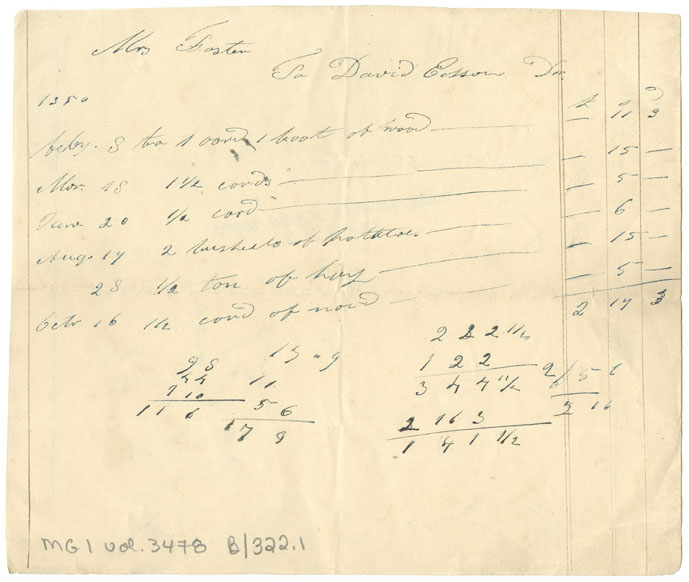 Mrs Foster
To David Esson Dr
1850 £ s D
feby. 8 to 1 cord 1 foot of wood — — 11 3
Mar. 18 1 1/2 cords " — — 15 —
June 20 1/2 cord " — — 5 —
Aug. 17 2 bushels of potatoes — — 6 —
28 1/2 ton of hay — — 15 —
octr 16 1/2 cord of wood — — 5 —
2 17 3
2 2 2 1/2
1 2 2
3 4 4 1/2
2 16 3
1 4 1 1/2
11
5 6
11 6
MG 1 vol. 3478 B/322.1